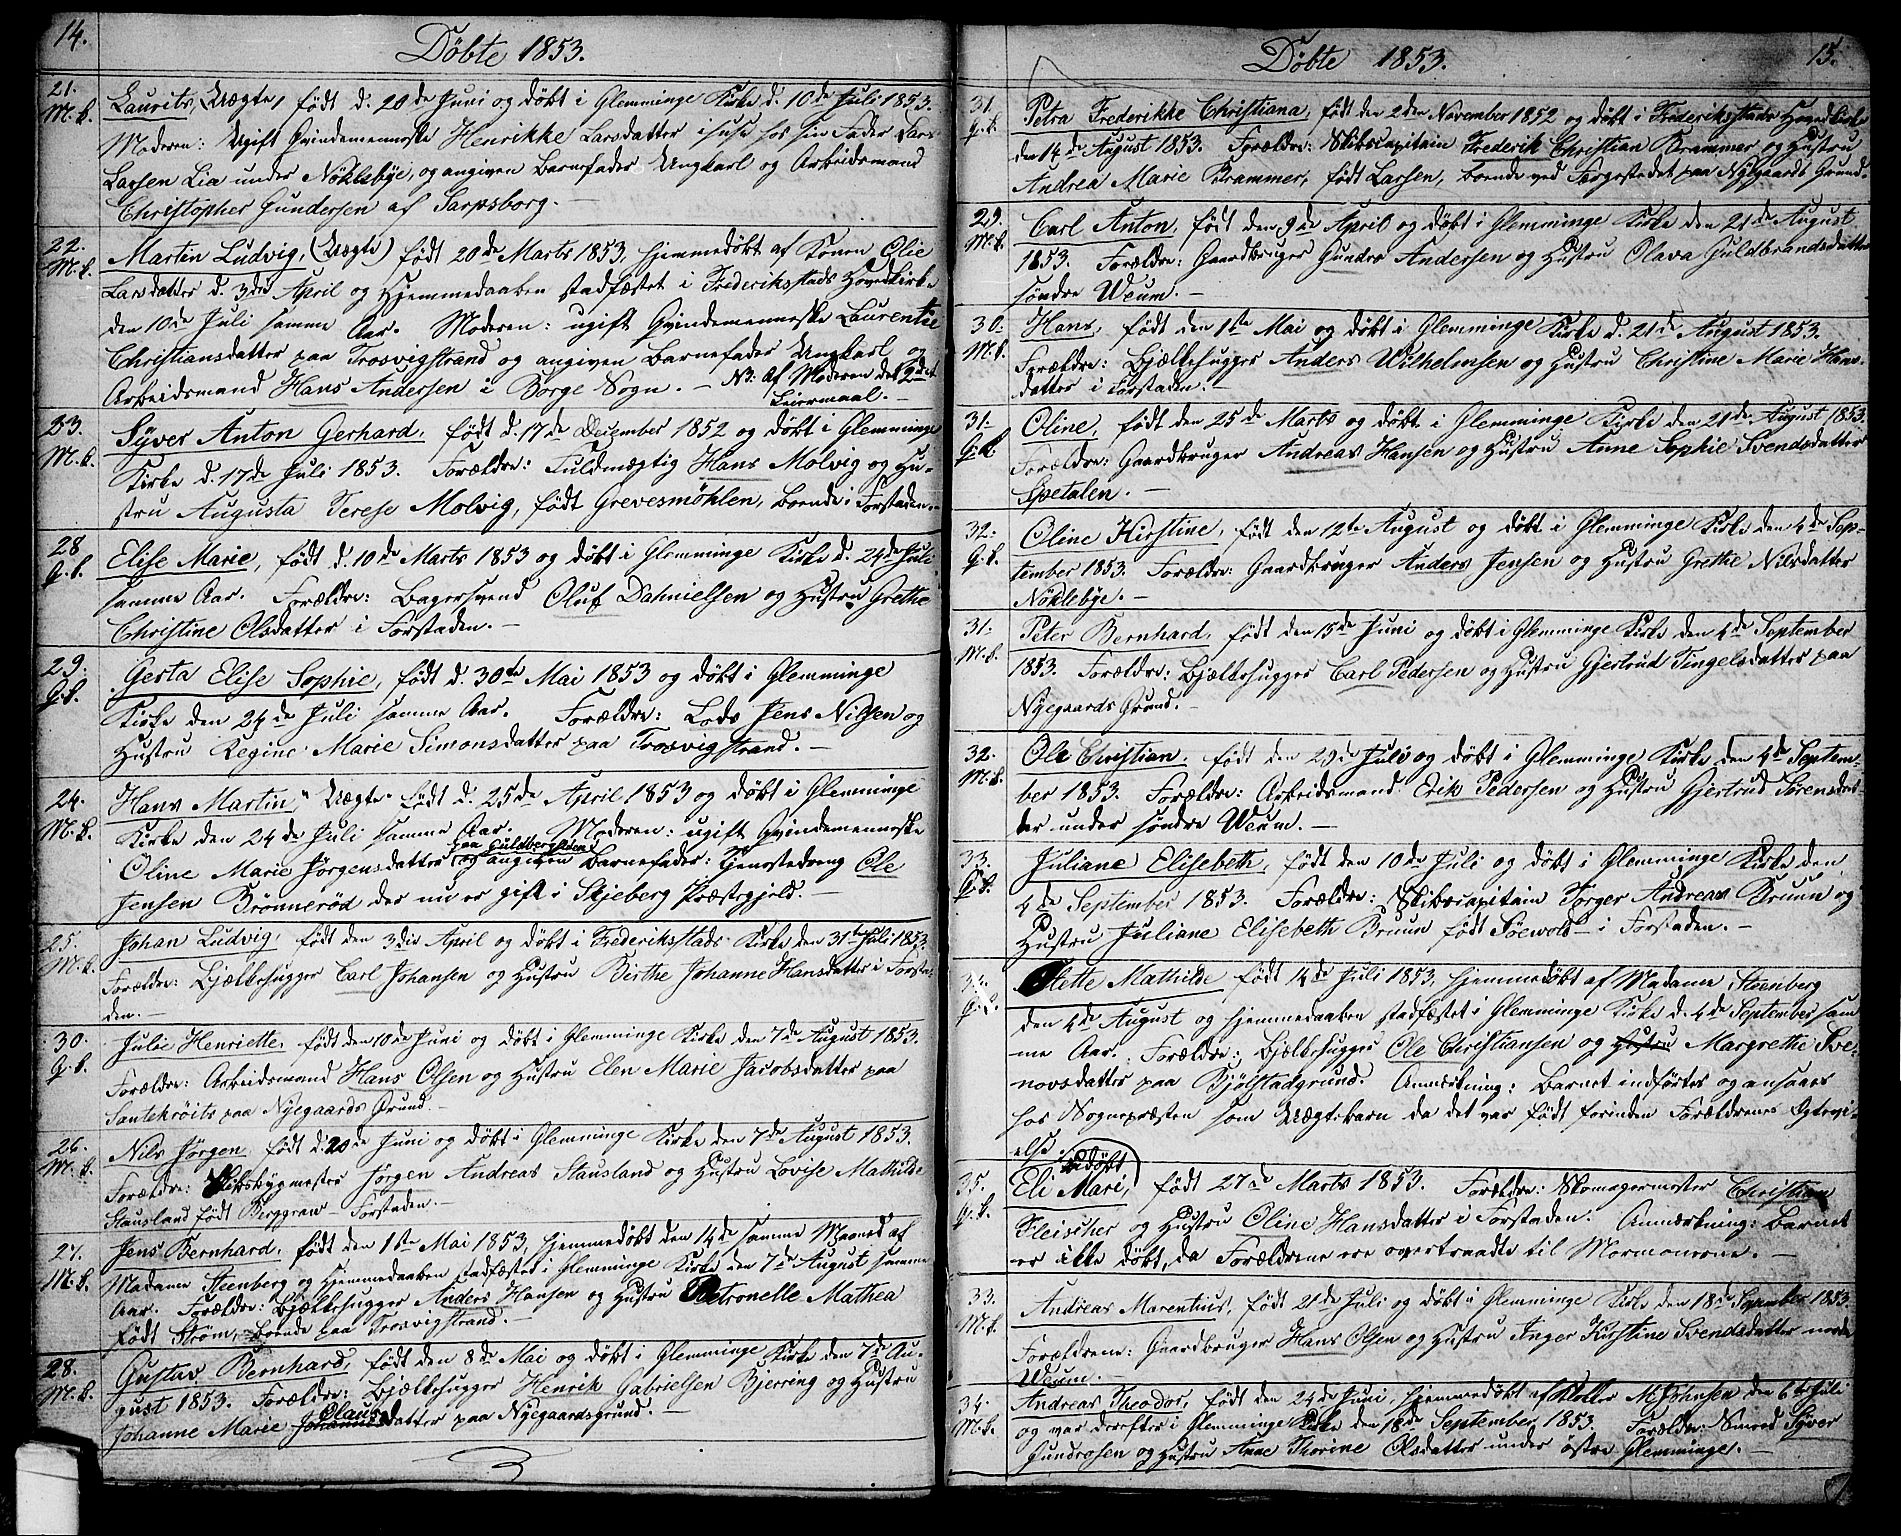 14.
Döbte 1853.
21. Laurits, (Uægte) født d. 20de Juni og døbt i Glemminge Kirke d. 10de Juli 1853.
M.k. Moderen: Ugift Qvindemenneske Henrikke Larsdatter i huse hos sin Fader Lars
Larsen Lia under Nöklebye, og angiven Barnefader Ungkarl og Arbeidsmand
Christopher Gundersen af Sarpsborg. –
22. Martin Ludvig, (Uægte) født 20de Marts 1853, hjemmedøbt af Konen Olie
M.k. Larsdatter d. 3die April og Hjemmedaaben stadfæstet i Frederikstads Hovedkirke
den 10de Juli samme Aar. Moderen: ugift Qvindemenneske Laurentie
Christiansdatter paa Trosvigstrand og angiven Barnefader Ungkarl og
Arbeidsmand Hans Andersen i Borge Sogn. – NB: Af Moderen det 2det
Leiermaal. –
23. Syver Anton Gerhard, født d. 17de December 1852 og døbt i Glemminge
M.k. Kirke d. 17de Juli 1853. Forældre: Fuldmægtig Hans Molvig og Hu-
stru Augusta Terese Molvig, født Grevesmöhlen, boende i Forstaden. –
28 Elise Marie, født d. 10de Marts 1853 og døbt i Glemminge Kirke d. 24de Juli
Q.k. samme Aar. Forældre: Bagersvend Oluf Dahnielsen og Hustru Grethe
Christine Olsdatter i Forstaden. –
29. Gerta Elise Sophie, født d. 30te Mai 1853 og døbt i Glemminge
Q.k. Kirke den 24de Juli samme Aar. Forældre: Lods Jens Nilsen og
Hustru Regine Marie Simonsdatter paa Trosvigstrand. –
24. Hans Martin, "Uægte" født d. 25de April 1853 og døbt i Glemminge
M.k. Kirke den 24de Juli samme Aar. Moderen: ugift Qvindemenneske
Oline Marie Jørgensdatter paa Guldbergsiden og angiven Barnefader: Tjenestedreng Ole
Jensen Brönnerød der nu er gift i Skjeberg Præstegjeld. –
25. Johan Ludvig, født den 3die April og døbt i Frederikstads Kirke den 31te Juli 1853.
M.k. Forældre: Bjælkehugger Carl Johansen og Hustru Birthe Johanne Hansdatter i Forsta-
den. –
30. Julie Henriette, født den 10de Juni og døbt i Glemminge Kirke den 7de August 1853.
Q.k. Forældre: Arbeidsmand Hans Olsen og Hustru Elen Marie Jacobsdatter paa
paa Nyegaards Grund. –
26. Nils Jörgen, født d. 20de Juni og døbt i Glemminge Kirke den 7de August 1853.
M.k. Forældre: Skibsbygmester Jørgen Andreas Stausland og Hustru Lovise Mathilde
Stausland født Berggraw Forstaden. –
27. Jens Bernhard, født den 1ste Mai 1853, hjemmedøbt den 14de samme Maaned af
M.k. Madame Steenberg og Hjemmedaaben stadfæstet i Glemminge Kirke den 7de August samme
Aar. Forældre: Bjælkehugger Anders Hansen og Hustru Petronelle Mathea
født Strøm, boende paa Trosvigstrand. –
28. Gustav Bernhard, født den 8de Mai og døbt i Glemminge Kirke den 7de Au-
M.k. gust 1853. Forældre: Bjælkehugger Henrik Gabrielsen Bjerring og Hustru
Johanne Marie Johannes Clausdatter paa Nyegaardsgrund. –
Döbte 1853.
15.
31. Petra Frederikke Christiana, født den 2den November 1852 og døbt i Frederikstads Hovedkirke
Q.k. den 14de August 1853. Forældre: Skibscapitain Frederik Christian Brammer og Hustru
Andrea Marie Brammer, født Larsen, boende ved Færgestedet paa Nyegaards Grund.
29. Carl Anton, født den 9de April og døbt i Glemminge Kirke den 21de August
M.k. 1853. Forældre: Gaardbruger Gundro Andersen og Hustru Olava Guldbrandsdatter
søndre Weum. –
30. Hans, født den 1ste Mai og døbt i Glemminge Kirke d. 21de August 1853.
M.k. Forældre: Bjælkehugger Anders Wilhelmsen og Hustru Christine Marie Hans-
datter i Forstaden. –
31. Oline, født den 25de Marts og døbt i Glemminge Kirke den 21de August 1853.
Q.k. Forældre: Gaardbruger Andreas Hansen og Hustru Anne Sophie Svendsdatter
Spetalen. –
32. Oline Kirstine, født den 12te August og døbt i Glemminge Kirke den 4de Sep-
Q.k. tember 1853. Forældre: Gaardbruger Anders Jensen og Hustru Grethe Nilsdatter
Nöklebye. –
31. Peter Bernhard, født den 15de Juni og døbt i Glemminge Kirke den 4de September
M.k. 1853. Forældre: Bjælkehugger Carl Pedersen og Hustru Gjertrud Tingelsdatter paa
Nyegaards Grund. –
32. Ole Christian, født den 20de Juli og døbt i Glemminge Kirke den 4de Septem-
M.k. ber 1853. Forældre: Arbeidsmand Erik Pedersen og Hustru Gjertrud Sörensdat-
ter under søndre Weum. –
33. Juliane Elisebeth, født den 10de Juli og døbt i Glemminge Kirke den
Q.k. 4de September 1853. Forældre: Skibscapitain Torger Andreas Bruun og
Hustru Juliane Elisebeth Bruun født Söewold i Forstaden. –
34. Mathilde født 14de Juli 1853, hjemmedøbt af Madame Steenberg
Q.k. den 4de August og Hjemmedaaben stadfæstet i Glemminge Kirke d. 4de September sam
me Aar. Forældre: Bjælkehugger Ole Christiansen og Hustru Margrethe Sve-
novsdatter paa Bjölstadgrund. Anmærkning: Barnet indførtes og ansaaes
hos Sognepræsten som Uægtebarn da det var født forinden Forældrenes Egtevi-
else.
35. Eli Mari, udøbt født 27de Marts 1853. Forældre: Skomagermester Christian
Q.k. Fleischer og Hustru Oline Hansdatter i Forstaden. Anmærkning: Barnet
er ikke døbt, da Forældrene ere overtraadte til Mormonerne. –
33. Andreas Marentius, født 21de Juli og døbt i Glemminge Kirke den 18de September 1853.
M.k. Forældrene: Gaardbruger Hans Olsen og Hustru Inger Kirstine Svendsdatter nordre
Weum. –
34. Andreas Theodor, født den 24de Juni, hjemmedøbt af Klokker M. Johnsen den 6te Juli
M.k. og var derefter i Glemminge Kirke den 18de September 1853. Forældre: Smed Syver
Gundrosen og Hustru Anne Thorine Olsdatter under østre Glemminge. –